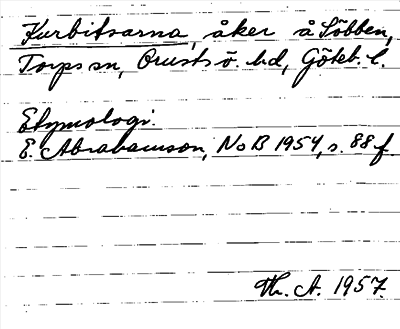 Kurbitsarna, åker å Söbben,
Torps sn, Orusts ö. hd, Göteb. l.
Etymologi.
E. Abrahamson, NoB 1954, s. 88 f.
Th. A. 1957.